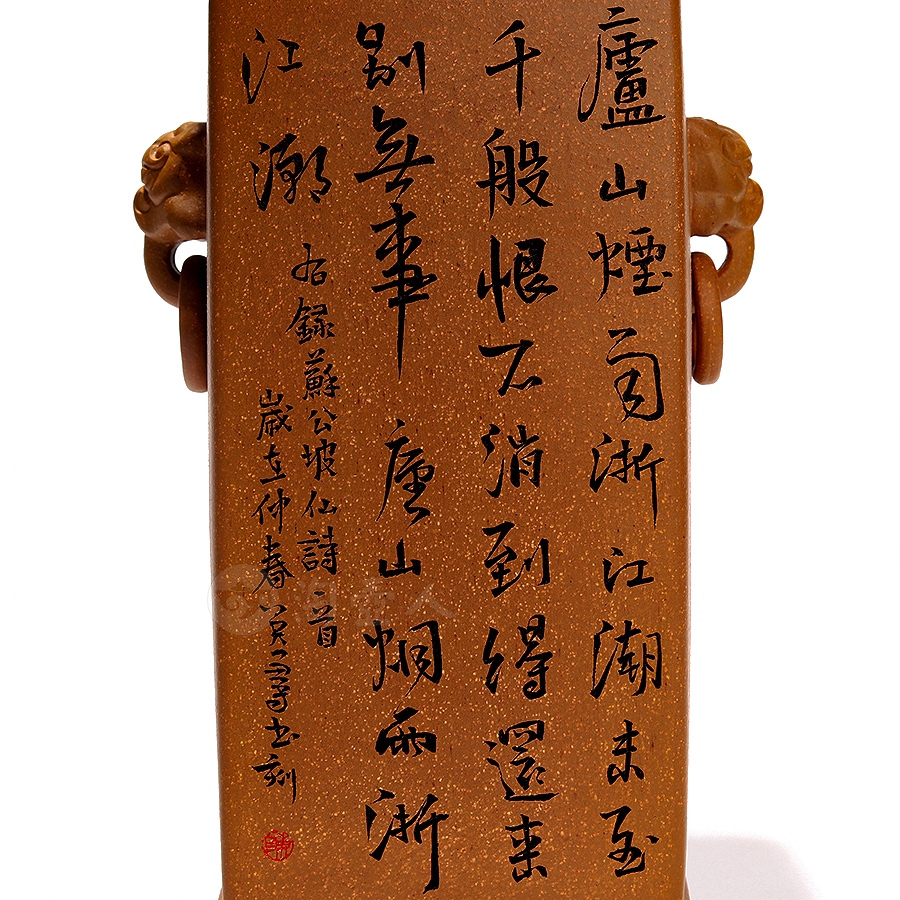 廬山煙雨浙江潮未至
千般恨不消到得還來
別無事廬山烟雨浙
江潮
右錄蘇公坡仙詩一首
歲在仲春書刻